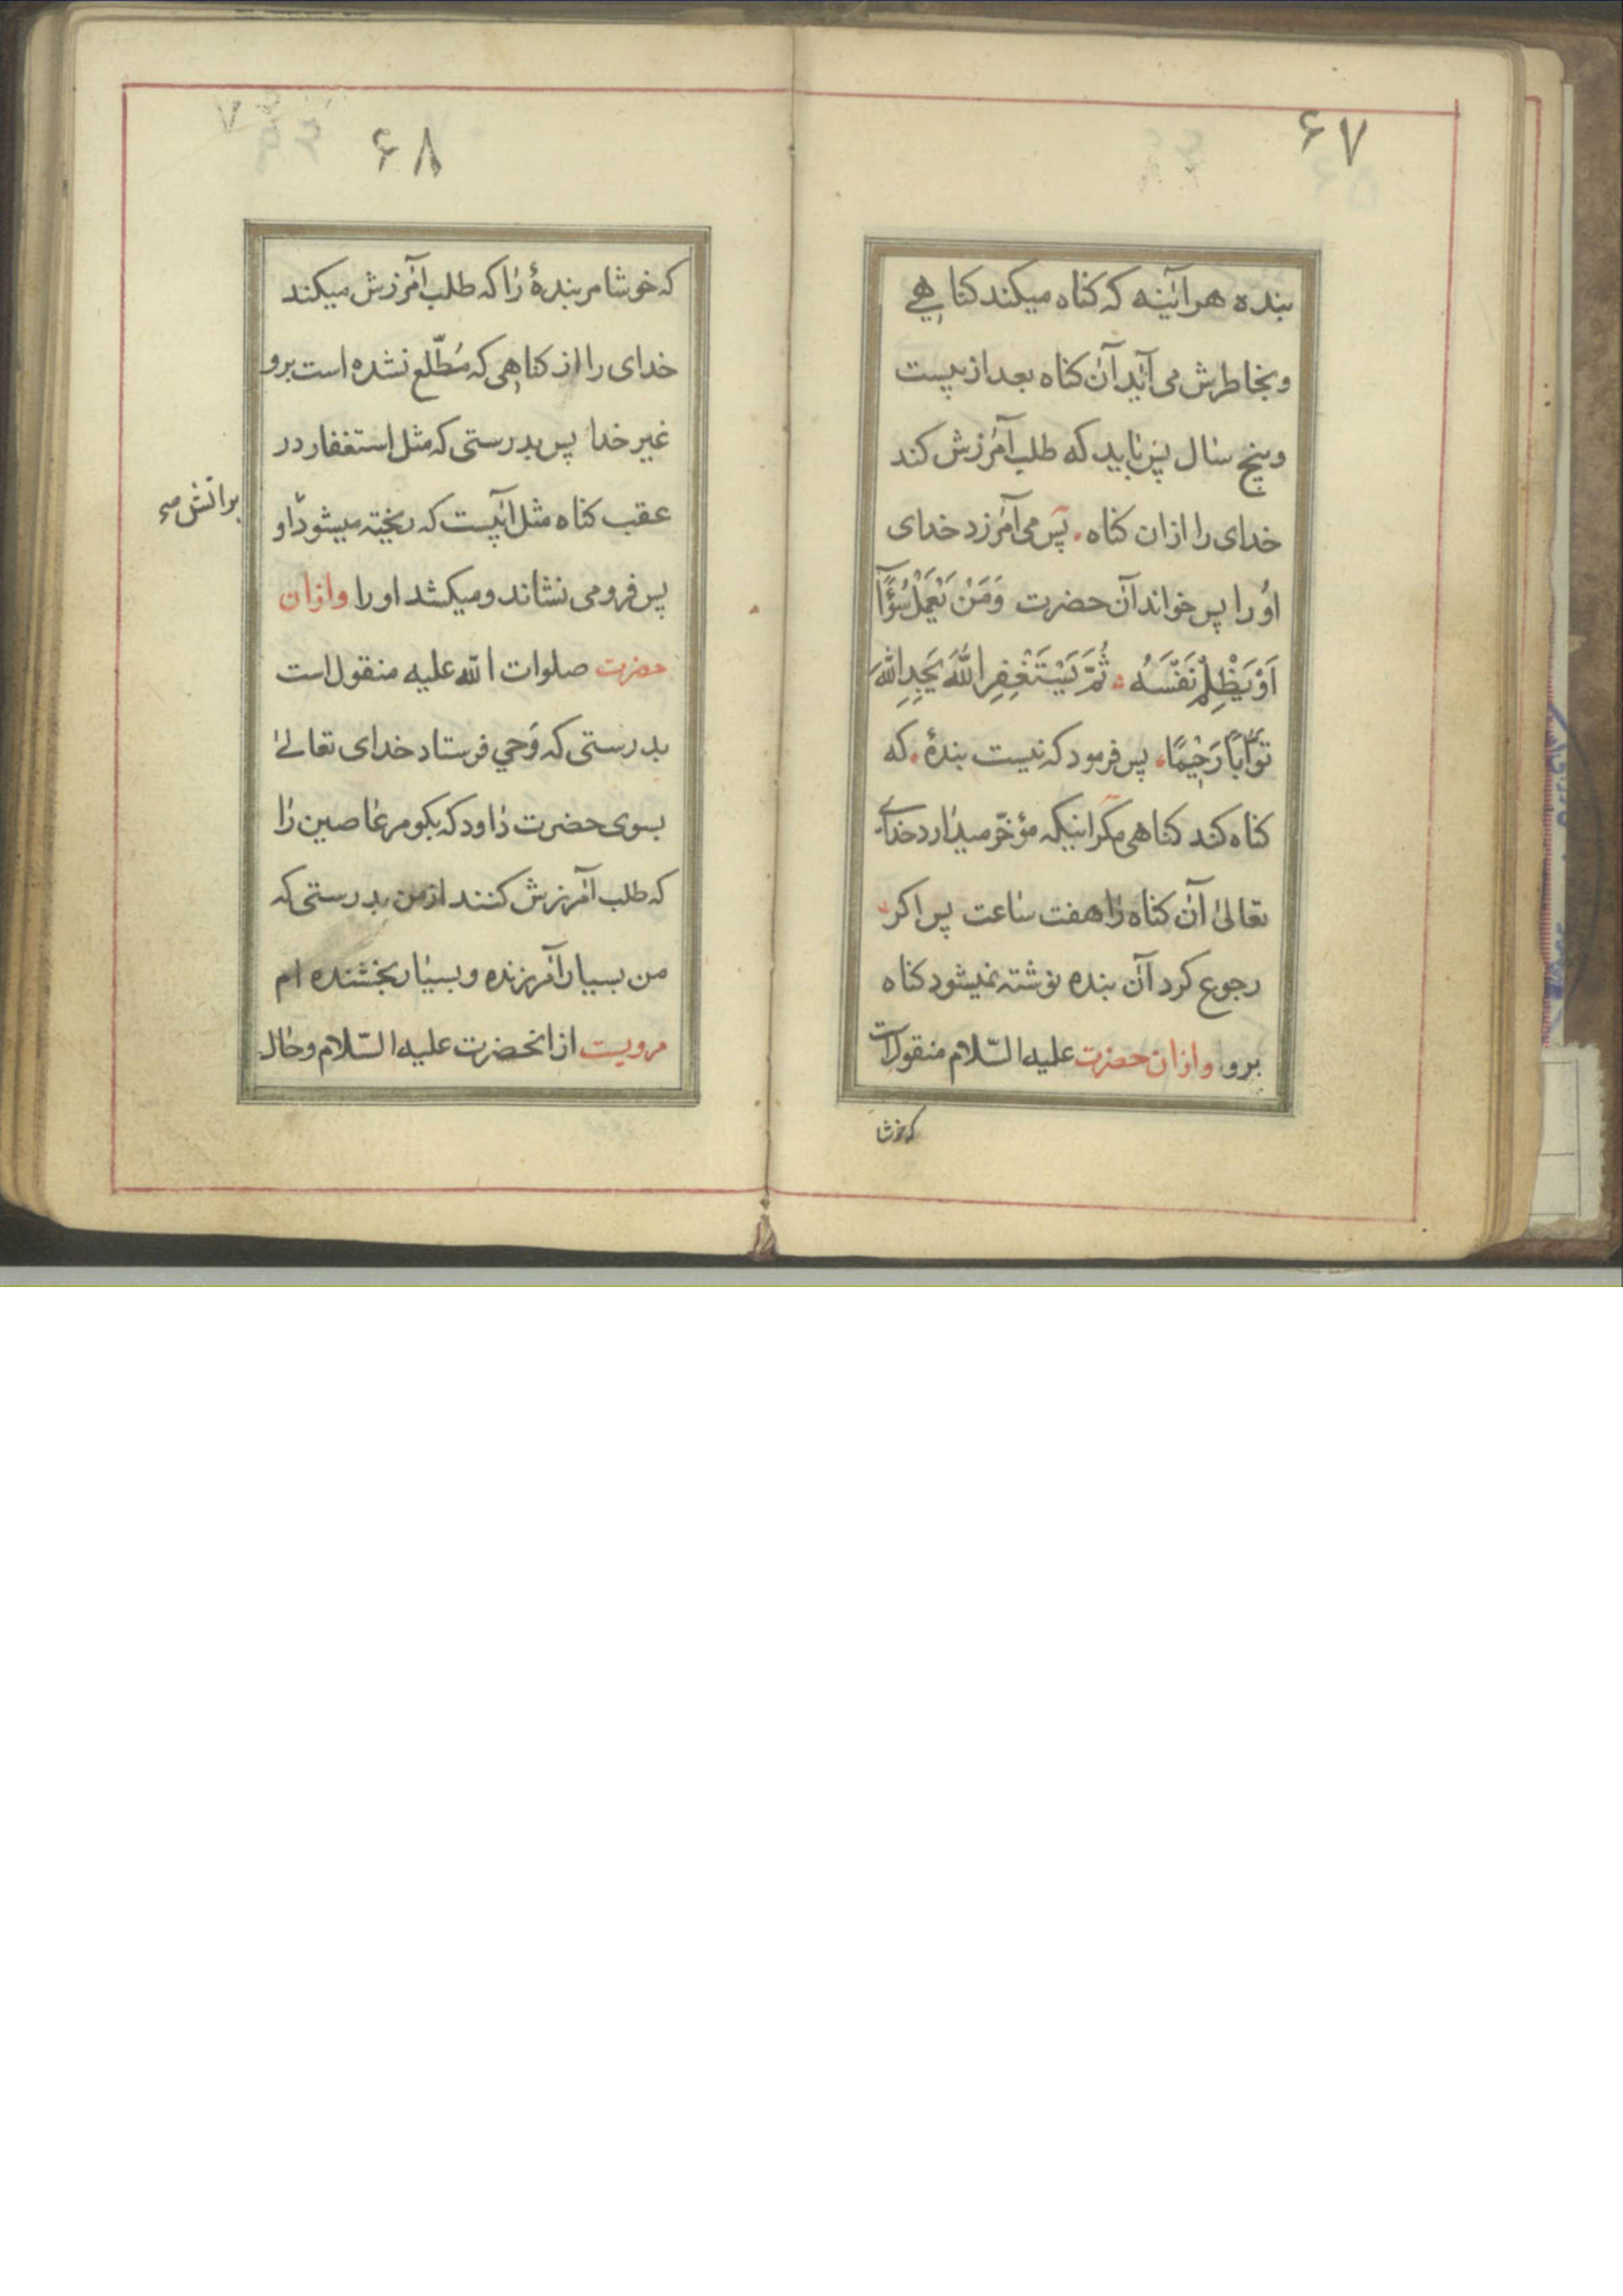 ۶۷
بنده هرآینه که کناه میکند کناهی
و بخاطرش می آید آن کناه بعد از بیست
و پنج سال پس باید که طلب آمرزش کند
خدای را ازان کناه . پس می آمرزد خدای
او را پس خواند آن حضرت وَمَنْ یَعْمَلْ سُوْءًا
اَوْ یَظْلِمْ نَفْسَهُ ثُمَّ یَسْتَغْفِرِ اللّٰهَ یَجِدِ اللّٰهَ
تَوَّابًا رَحِیْمًا . پس فرمود که نیست بندهٔ . که
کناه کند کناهی مکر اینکه مؤخّر میدارد خدای
تعالیٰ آن کناه را هفت ساعت پس اکر
رجوع کرد آن بنده نوشته نمیشود کناه
برو وازان حضرت علیه السّلام منقول است
که خوشا
۶۸
که خوشا مر بندهٔ را که طلب آمرزش میکند
خدای را از کناهی که مُطّلع نشده است برو
غیر خدا پس بدرستی که مثل استغفار در
عقب کناه مثل آبیست که ریخته میشود او
بر آتش صح
پس فرو می نشاند و میکشد او را وازان
حضرت صلوات الله علیه منقول است
بدرستی که وَحی فرستاد خدای تعالیٰ
بسوی حضرت داود که بکو مر عاصین را
که طلب آمرزش کنند از من بدرستی که
من بسیار آمرزنده و بسیار بخشنده ام
مرویست از انحضرت علیه السّلام و حال